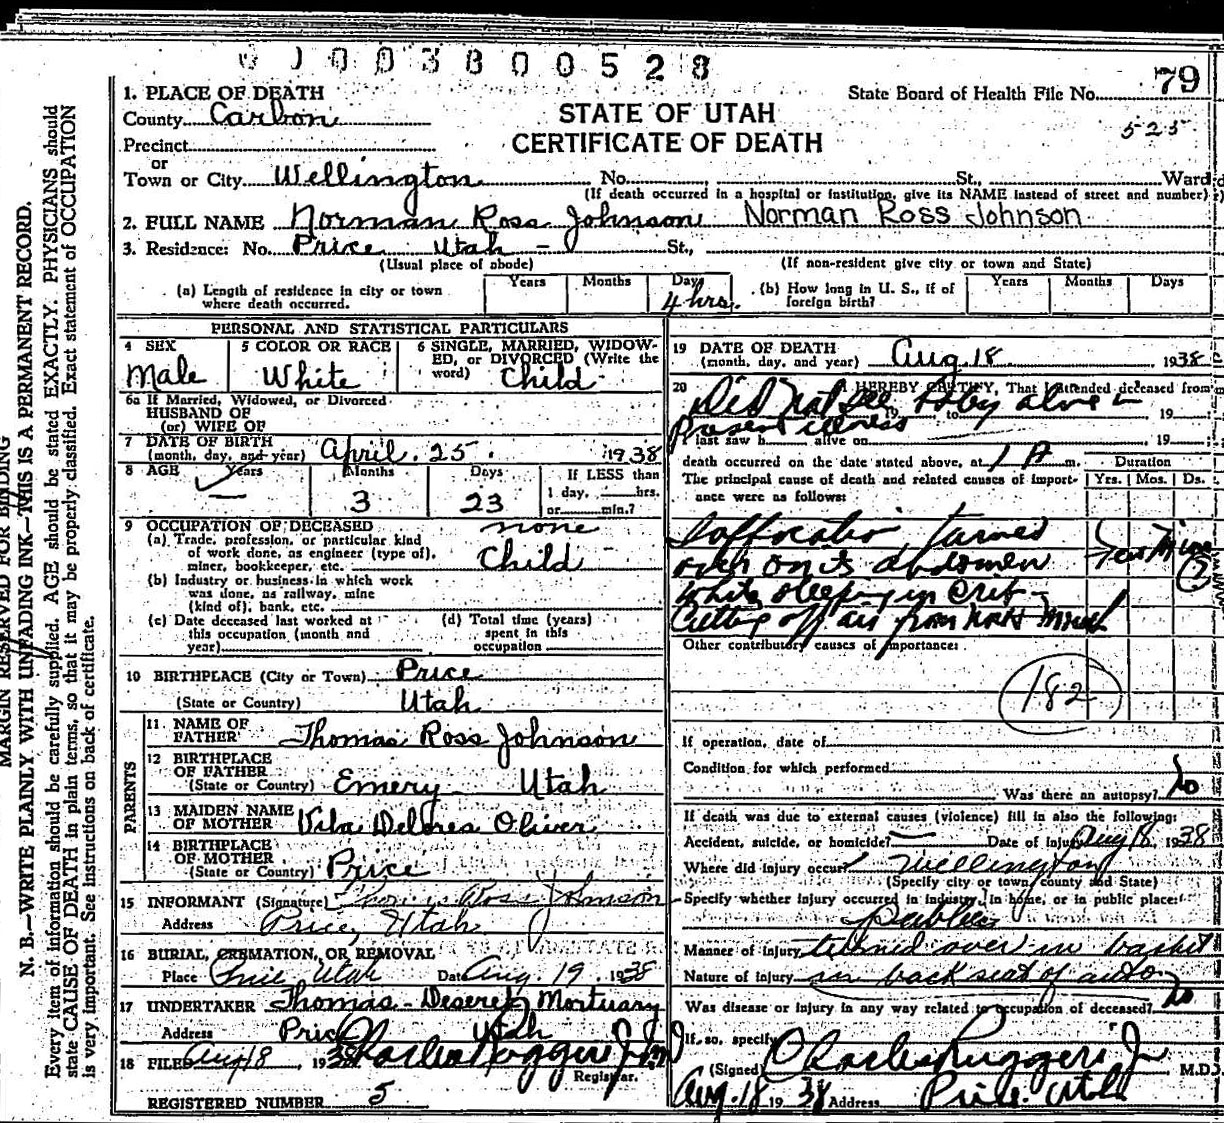 0 1 0 0 3 8 0 0 5 2 8
79
1. PLACE OF DEATH
State Board of Health File No.
County Carbon
STATE OF UTAH
525
Precinct
CERTIFICATE OF DEATH
or
Town or City Wellington No. St., Ward
(If death occurred in a hospital or institution, give its NAME instead of street and number)
2. FULL NAME Norman Ross Johnson Norman Ross Johnson
3. Residence: No. Price Utah - St.,
(Usual place of abode) (If non-resident give city or town and State)
(a) Length of residence in city or town where death occurred. Years Months Days 4 hrs. (b) How long in U. S., if of foreign birth? Years Months Days
PERSONAL AND STATISTICAL PARTICULARS
4 SEX Male
5 COLOR OR RACE White
6 SINGLE, MARRIED, WIDOWED, or DIVORCED (Write the word) Child
6a If Married, Widowed, or Divorced
HUSBAND OF
(or) WIFE OF
7 DATE OF BIRTH
(month, day, and year) April 25 1938
8 AGE Years — Months 3 Days 23 If LESS than 1 day, hrs. or min.?
9 OCCUPATION OF DECEASED none
(a) Trade, profession, or particular kind
of work done, as engineer (type of),
miner, bookkeeper, etc. Child
(b) Industry or business in which work
was done, as railway, mine
(kind of), bank, etc.
(c) Date deceased last worked at
this occupation (month and
year)
(d) Total time (years)
spent in this
occupation
10 BIRTHPLACE (City or Town) Price
(State or Country) Utah
PARENTS
11 NAME OF
FATHER Thomas Ross Johnson
12 BIRTHPLACE
OF FATHER
(State or Country) Emery Utah
13 MAIDEN NAME
OF MOTHER Delores Oliver
14 BIRTHPLACE
OF MOTHER
(State or Country) Price
15 INFORMANT (Signature) Thomas Ross Johnson
Address Price, Utah
16 BURIAL, CREMATION, OR REMOVAL
Place Price, Utah Date Aug. 19 1938
17 UNDERTAKER Thomas - Deseret Mortuary
Address Price Utah
18 FILED Aug 18, 1938 Charles Ruggeri Jr MD
Registrar.
REGISTERED NUMBER 5
19 DATE OF DEATH
(month, day, and year) Aug 18 1938
20 I HEREBY CERTIFY, That I attended deceased from
Did not see baby alive in 19
19 to
present illness
last saw h alive on 19
death occurred on the date stated above, at 1 A m.
Duration
The principal cause of death and related causes of importance were as follows: Yrs. Mos. Ds.
Suffocation, turned
over on its abdomen Few Min
while sleeping in crib - (?)
Cutting off air from nose & mouth
Other contributory causes of importance:
182
If operation, date of
Condition for which performed
Was there an autopsy? No
If death was due to external causes (violence) fill in also the following:
Accident, suicide, or homicide? — Date of injury Aug 18, 1938
Where did injury occur? Wellington
(Specify city or town, county and State)
Specify whether injury occurred in industry, in home, or in public place:
public
Manner of injury turned over in basket
Nature of injury in back seat of auto
Was disease or injury in any way related to occupation of deceased? No
If so, specify
(Signed) Charles Ruggeri Jr M.D.
Aug. 18 1938 Address Price Utah
MARGIN RESERVED FOR BINDING
N. B.—WRITE PLAINLY WITH UNFADING INK—THIS IS A PERMANENT RECORD.
Every item of information should be carefully supplied. AGE should be stated EXACTLY. PHYSICIANS should
state CAUSE OF DEATH in plain terms, so that it may be properly classified. Exact statement of OCCUPATION
is very important. See instructions on back of certificate.